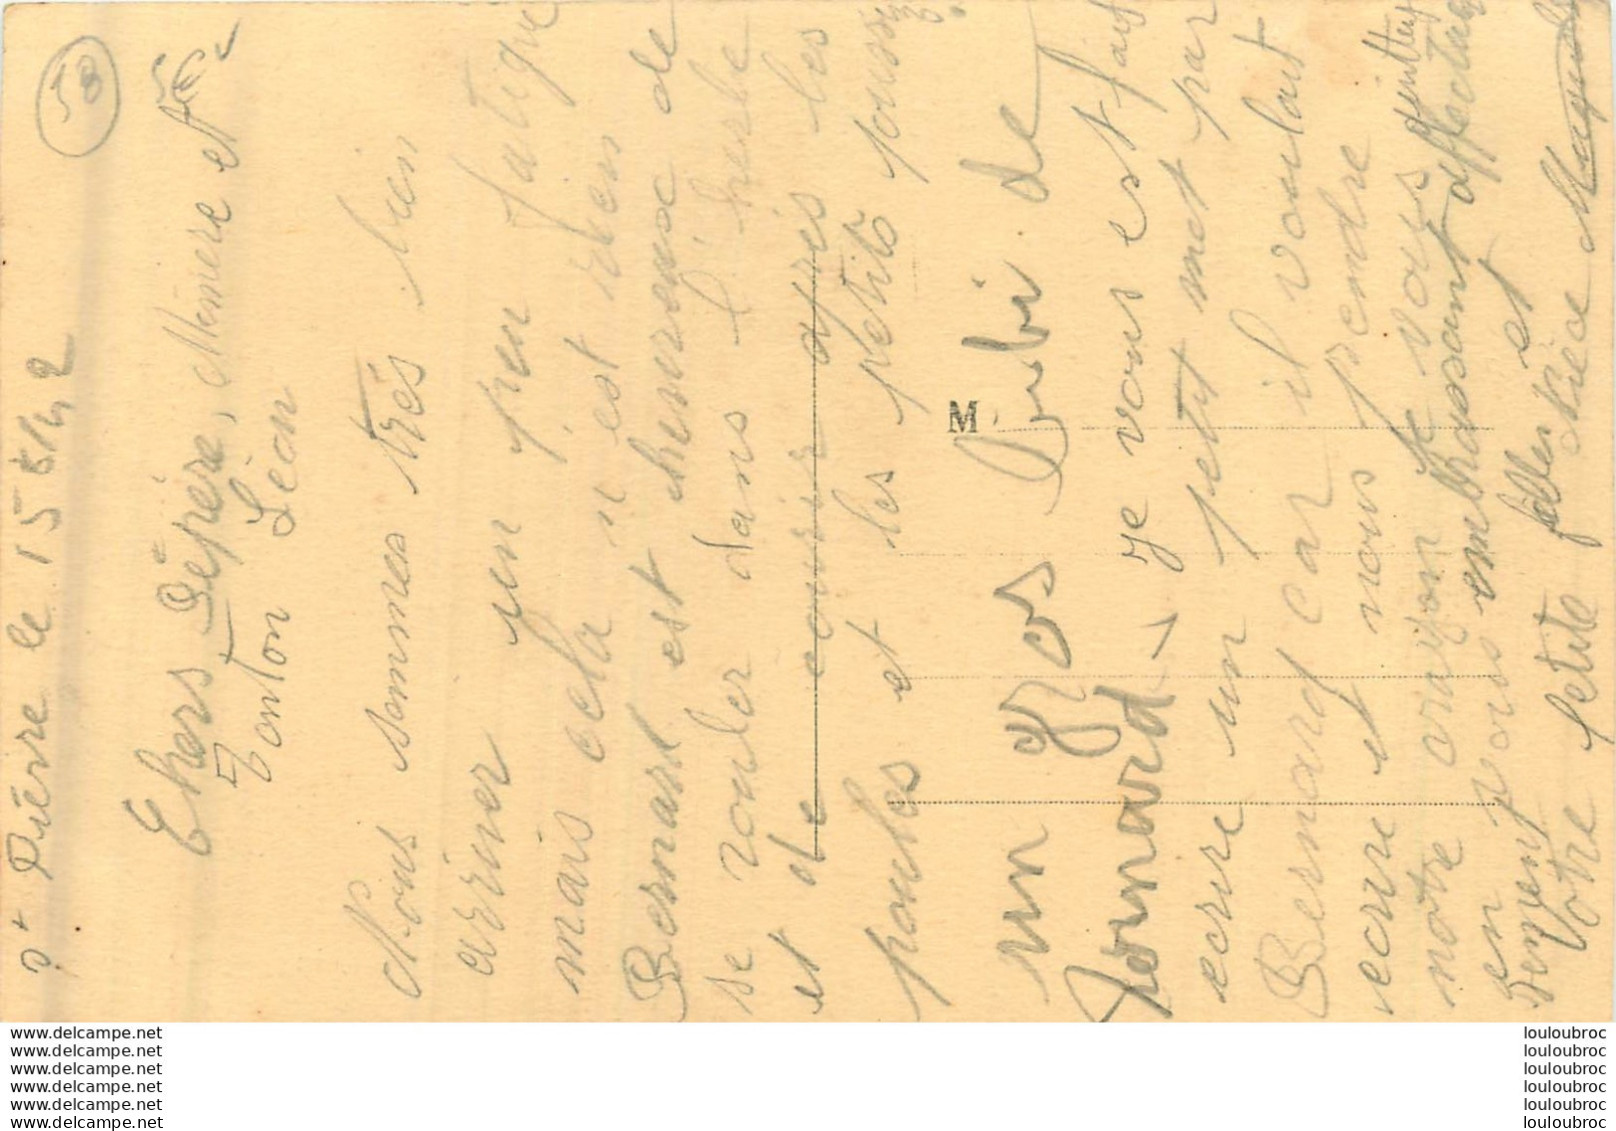 St Pierre le 15 8/42
58
Chers Pépère, Mémère et
Tonton Léon
Nous sommes très bien
arriver un peu fatigué
mais cela n'est rien
Bernard est heureuse de
se rouler dans l'herbe
et de courir après les
poules et les petits poussi
un gros bibi de
Bernard je vous est fait
ecrire un petit mot par
Bernard car il voulait
ecrire et nous prendre
notre crayon je vous quittent
en vous embrassant affectueu
sement
Votre petite fille nièce et
M
www.delcampe.net
www.delcampe.net
www.delcampe.net
www.delcampe.net
www.delcampe.net
www.delcampe.net
louloubroc
louloubroc
louloubroc
louloubroc
louloubroc
louloubroc